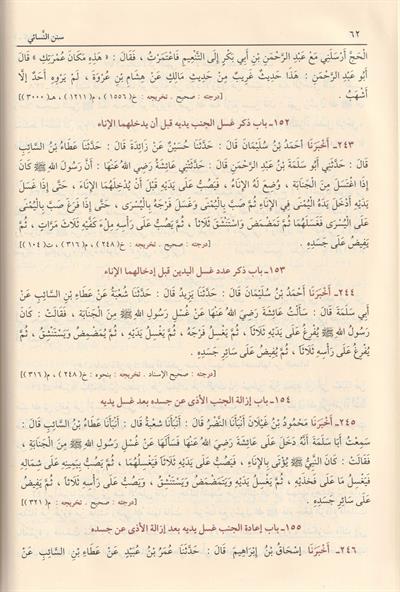 ٦٢ سنن النسائي
الْحَجَّ أَرْسَلَنِي مَعَ عَبْدِ الرَّحْمَنِ بْنِ أَبِي بَكْرٍ إِلَى التَّنْعِيمِ فَاعْتَمَرْتُ ، فَقَالَ : « هَذِهِ مَكَانَ عُمْرَتِكِ » قَالَ
أَبُو عَبْدِ الرَّحْمَنِ : هَذَا حَدِيثٌ غَرِيبٌ مِنْ حَدِيثِ مَالِكٍ عَنْ هِشَامِ بْنِ عُرْوَةَ ، لَمْ يَرْوِهِ أَحَدٌ إِلَّا
أَشْهَبُ . [درجته : صحيح . تخريجه : خ(١٥٥٦) ، م(١٢١١) ، هـ(٣٠٠٠)]
١٥٢ـ باب ذكر غسل الجنب يديه قبل أن يدخلهما الإناء
٢٤٣ـ أَخْبَرَنَا أَحْمَدُ بْنُ سُلَيْمَانَ قَالَ : حَدَّثَنَا حُسَيْنٌ عَنْ زَائِدَةَ قَالَ : حَدَّثَنَا عَطَاءُ بْنُ السَّائِبِ
قَالَ : حَدَّثَنِي أَبُو سَلَمَةَ بْنُ عَبْدِ الرَّحْمَنِ قَالَ : حَدَّثَتْنِي عَائِشَةُ رَضِيَ اللهُ عَنْهَا : أَنَّ رَسُولَ اللهِ ﷺ كَانَ
إِذَا اغْتَسَلَ مِنَ الْجَنَابَةِ ، وُضِعَ لَهُ الْإِنَاءُ ، فَيَصُبُّ عَلَى يَدَيْهِ قَبْلَ أَنْ يُدْخِلَهُمَا الْإِنَاءَ ، حَتَّى إِذَا غَسَلَ
يَدَيْهِ أَدْخَلَ يَدَهُ الْيُمْنَى فِي الْإِنَاءِ ثُمَّ صَبَّ بِالْيُمْنَى وَغَسَلَ فَرْجَهُ بِالْيُسْرَى ، حَتَّى إِذَا فَرَغَ صَبَّ بِالْيُمْنَى
عَلَى الْيُسْرَى فَغَسَلَهُمَا ثُمَّ تَمَضْمَضَ وَاسْتَنْشَقَ ثَلَاثًا ، ثُمَّ يَصُبُّ عَلَى رَأْسِهِ مِلْءَ كَفَّيْهِ ثَلَاثَ مَرَّاتٍ ، ثُمَّ
يُفِيضُ عَلَى جَسَدِهِ . [درجته : صحيح . تخريجه : خ(٢٤٨) ، م(٣١٦) ، ت(١٠٤)]
١٥٣ـ باب ذكر عدد غسل اليدين قبل إدخالهما الإناء
٢٤٤ـ أَخْبَرَنَا أَحْمَدُ بْنُ سُلَيْمَانَ قَالَ : حَدَّثَنَا يَزِيدُ قَالَ : حَدَّثَنَا شُعْبَةُ عَنْ عَطَاءِ بْنِ السَّائِبِ عَنْ
أَبِي سَلَمَةَ قَالَ : سَأَلْتُ عَائِشَةَ رَضِيَ اللهُ عَنْهَا عَنْ غُسْلِ رَسُولِ اللهِ ﷺ مِنَ الْجَنَابَةِ ، فَقَالَتْ : كَانَ
رَسُولُ اللهِ ﷺ يُفْرِغُ عَلَى يَدَيْهِ ثَلَاثًا ، ثُمَّ يَغْسِلُ فَرْجَهُ ، ثُمَّ يَغْسِلُ يَدَيْهِ ، ثُمَّ يُمَضْمِضُ وَيَسْتَنْشِقُ ، ثُمَّ
يُفْرِغُ عَلَى رَأْسِهِ ثَلَاثًا ، ثُمَّ يُفِيضُ عَلَى سَائِرِ جَسَدِهِ . [درجته : صحيح الإسناد . تخريجه : بنحوه : خ(٢٤٨) ، م(٣١٦)]
١٥٤ـ باب إزالة الجنب الأذى عن جسده بعد غسل يديه
٢٤٥ـ أَخْبَرَنَا مَحْمُودُ بْنُ غَيْلَانَ أَنْبَأَنَا النَّضْرُ قَالَ : أَنْبَأَنَا شُعْبَةُ قَالَ : أَنْبَأَنَا عَطَاءُ بْنُ السَّائِبِ قَالَ :
سَمِعْتُ أَبَا سَلَمَةَ أَنَّهُ دَخَلَ عَلَى عَائِشَةَ رَضِيَ اللهُ عَنْهَا فَسَأَلَهَا عَنْ غُسْلِ رَسُولِ اللهِ ﷺ مِنَ الْجَنَابَةِ ،
فَقَالَتْ : كَانَ النَّبِيُّ ﷺ يُؤْتَى بِالْإِنَاءِ ، فَيَصُبُّ عَلَى يَدَيْهِ ثَلَاثًا فَيَغْسِلُهُمَا ، ثُمَّ يَصُبُّ بِيَمِينِهِ عَلَى شِمَالِهِ
فَيَغْسِلُ مَا عَلَى فَخِذَيْهِ ، ثُمَّ يَغْسِلُ يَدَيْهِ وَيَتَمَضْمَضُ وَيَسْتَنْشِقُ ، وَيَصُبُّ عَلَى رَأْسِهِ ثَلَاثًا ، ثُمَّ يُفِيضُ
عَلَى سَائِرِ جَسَدِهِ . [درجته : صحيح . تخريجه : م(٣٢١)]
١٥٥ـ باب إعادة الجنب غسل يديه بعد إزالة الأذى عن جسده
٢٤٦ـ أَخْبَرَنَا إِسْحَاقُ بْنُ إِبْرَاهِيمَ قَالَ : حَدَّثَنَا عُمَرُ بْنُ عُبَيْدٍ عَنْ عَطَاءِ بْنِ السَّائِبِ عَنْ